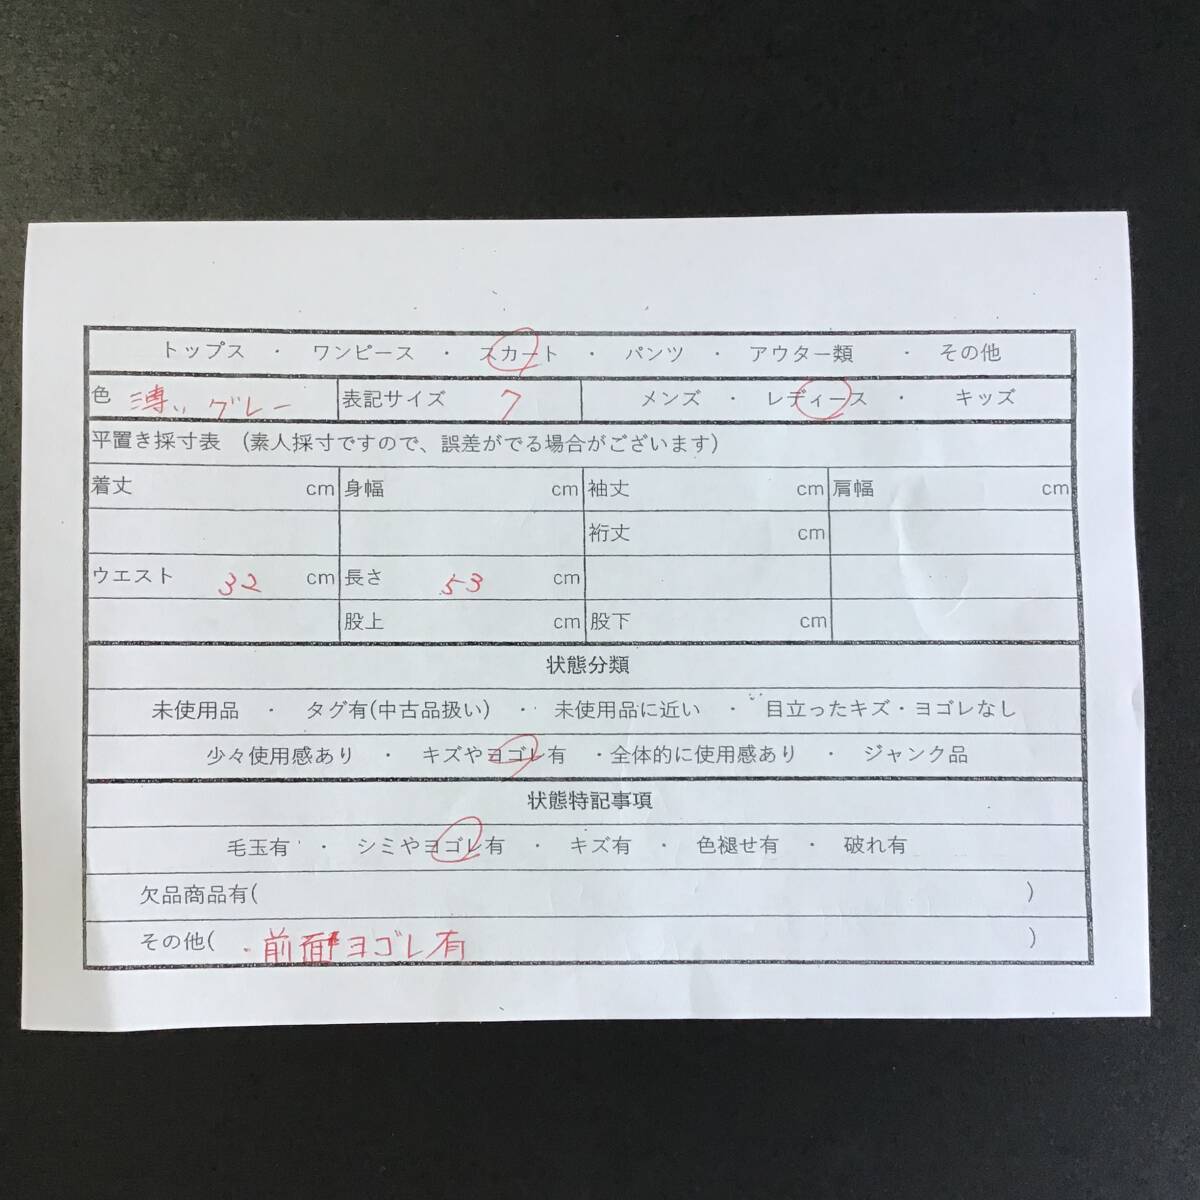 トップス ・ ワンピース ・ スカート ・ パンツ ・ アウター類 ・ その他
色 薄い グレー 表記サイズ 7 メンズ ・ レディース ・ キッズ
平置き採寸表 (素人採寸ですので、誤差がでる場合がございます)
着丈 cm 身幅 cm 袖丈 cm 肩幅 cm
裄丈 cm
ウエスト 32 cm 長さ 53 cm
股上 cm 股下 cm
状態分類
未使用品 ・ タグ有(中古品扱い) ・ 未使用品に近い ・ 目立ったキズ・ヨゴレなし
少々使用感あり ・ キズやヨゴレ有 ・全体的に使用感あり ・ ジャンク品
状態特記事項
毛玉有 ・ シミやヨゴレ有 ・ キズ有 ・ 色褪せ有 ・ 破れ有
欠品商品有( )
その他( ・前面ヨゴレ有 )